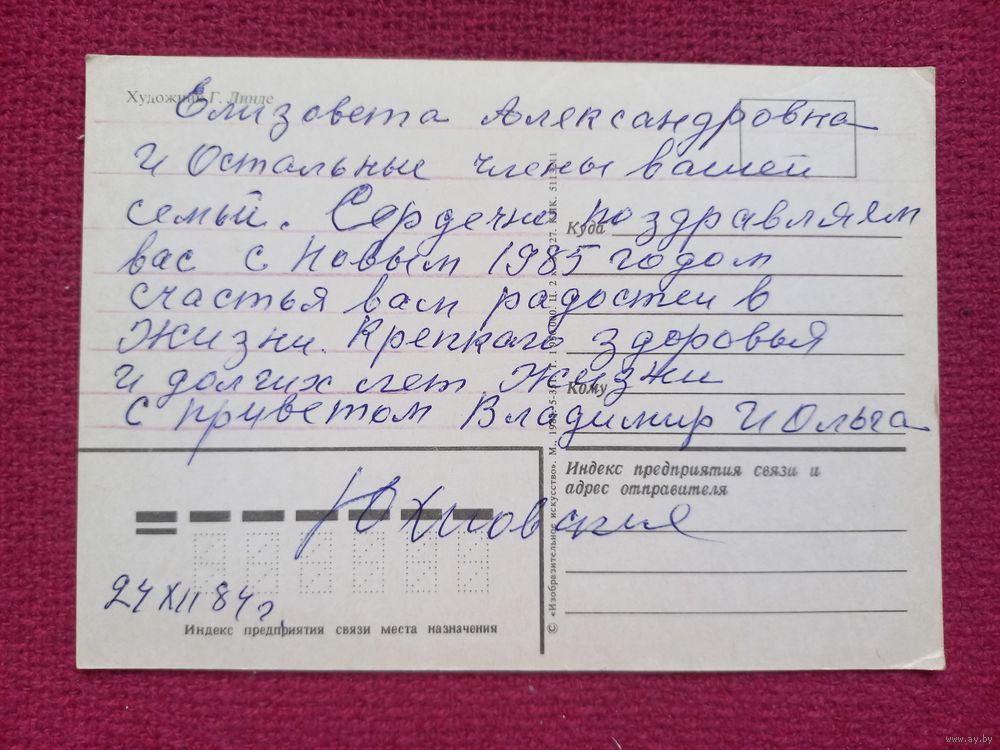 Художник Г. Линде
Елизовета Александровна
и Остальные члены вашей
семьи. Сердечно поздравляем
вас с Новым 1985 годом
счастья вам радостей в
жизни. Крепкого здоровья
и долгих лет жизни
с приветом Владимир и Ольга
24 XII 84 г.
Куда
Кому
Индекс предприятия связи и
адрес отправителя
Индекс предприятия связи места назначения
© «Изобразительное искусство». М.,
www.ay.by